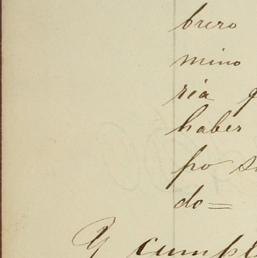 brero
mino
ria q
haber
po s
do=
Y cumpl